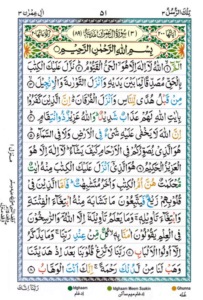 تِلْكَ الرُّسُلُ ٣
٥١
اٰلِ عِمْرٰن ٣
بِسْمِ اللهِ الرَّحْمٰنِ الرَّحِيْمِ
الٓمّٓ ۙ اللهُ لَآ اِلٰهَ اِلَّا هُوَ الْحَىُّ الْقَيُّوْمُ ؕ نَزَّلَ عَلَيْكَ الْكِتٰبَ
بِالْحَقِّ مُصَدِّقًا لِّمَا بَيْنَ يَدَيْهِ وَاَنْزَلَ التَّوْرٰىةَ وَالْاِنْجِيْلَ
مِنْ قَبْلُ هُدًى لِّلنَّاسِ وَاَنْزَلَ الْفُرْقَانَ ؕ اِنَّ الَّذِيْنَ كَفَرُوْا
بِاٰيٰتِ اللهِ لَهُمْ عَذَابٌ شَدِيْدٌ ؕ وَاللهُ عَزِيْزٌ ذُو انْتِقَامٍ
اِنَّ اللهَ لَا يَخْفٰى عَلَيْهِ شَىْءٌ فِى الْاَرْضِ وَلَا فِى السَّمَآءِ
هُوَ الَّذِىْ يُصَوِّرُكُمْ فِى الْاَرْحَامِ كَيْفَ يَشَآءُ ؕ لَآ اِلٰهَ اِلَّا
هُوَ الْعَزِيْزُ الْحَكِيْمُ هُوَ الَّذِىْۤ اَنْزَلَ عَلَيْكَ الْكِتٰبَ مِنْهُ اٰيٰتٌ
مُّحْكَمٰتٌ هُنَّ اُمُّ الْكِتٰبِ وَاُخَرُ مُتَشٰبِهٰتٌ ؕ فَاَمَّا الَّذِيْنَ فِىْ
قُلُوْبِهِمْ زَيْغٌ فَيَتَّبِعُوْنَ مَا تَشَابَهَ مِنْهُ ابْتِغَآءَ الْفِتْنَةِ
وَابْتِغَآءَ تَاْوِيْلِهٖ ۚ وَمَا يَعْلَمُ تَاْوِيْلَهٗۤ اِلَّا اللهُ ۘ وَالرّٰسِخُوْنَ
فِى الْعِلْمِ يَقُوْلُوْنَ اٰمَنَّا بِهٖ ۙ كُلٌّ مِّنْ عِنْدِ رَبِّنَا ۚ وَمَا يَذَّكَّرُ
اِلَّآ اُولُوا الْاَلْبَابِ رَبَّنَا لَا تُزِغْ قُلُوْبَنَا بَعْدَ اِذْ هَدَيْتَنَا
وَهَبْ لَنَا مِنْ لَّدُنْكَ رَحْمَةً ۚ اِنَّكَ اَنْتَ الْوَهَّابُ
Ikhfa Meem Saakin
Ghunna